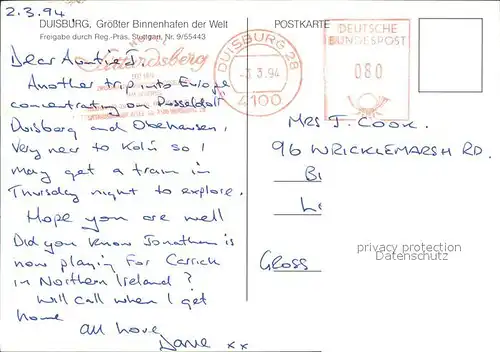 2.3.94
DUISBURG, Größter Binnenhafen der Welt
Freigabe durch Reg.-Präs. Stuttgart, Nr. 9/55443
POSTKARTE
Dear Auntie J.
Another trip into Europe
concentrating on Dusseldorf
Duisberg and Oberhausen,
Very near to Koln so I
may get a train in
Thursday night to explore.
Hope you are well
Did you know Jonathan is
now playing for Carrick
in Northern Ireland?
Will call when I get
home
All love
Dave xx
DUISBURG 28
-3.3.94
4100
DEUTSCHE
BUNDESPOST
080
Mrs J. Cook.
96 WRICKLEMARSH RD.
Bl
Lo
Gloss
privacy protection
Datenschutz